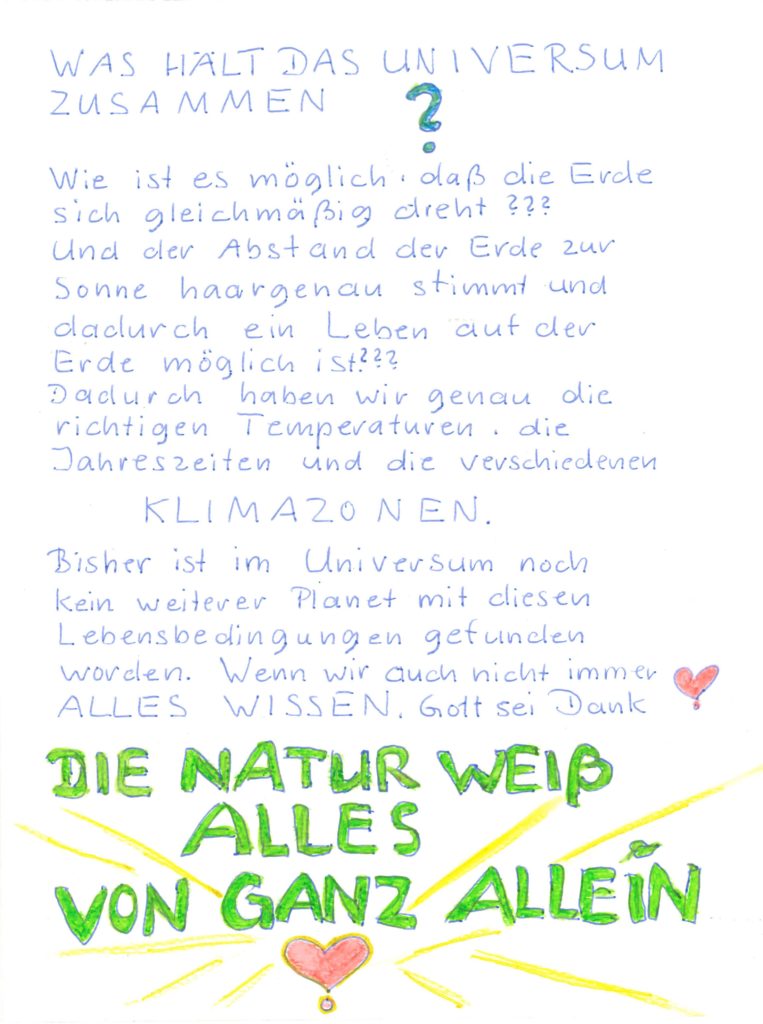 WAS HÄLT DAS UNIVERSUM
ZUSAMMEN ?
Wie ist es möglich, daß die Erde
sich gleichmäßig dreht ???
Und der Abstand der Erde zur
Sonne haargenau stimmt und
dadurch ein Leben auf der
Erde möglich ist???
Dadurch haben wir genau die
richtigen Temperaturen, die
Jahreszeiten und die verschiedenen
KLIMAZONEN.
Bisher ist im Universum noch
kein weiterer Planet mit diesen
Lebensbedingungen gefunden
worden. Wenn wir auch nicht immer
ALLES WISSEN. Gott sei Dank
DIE NATUR WEIß
ALLES
VON GANZ ALLEIN